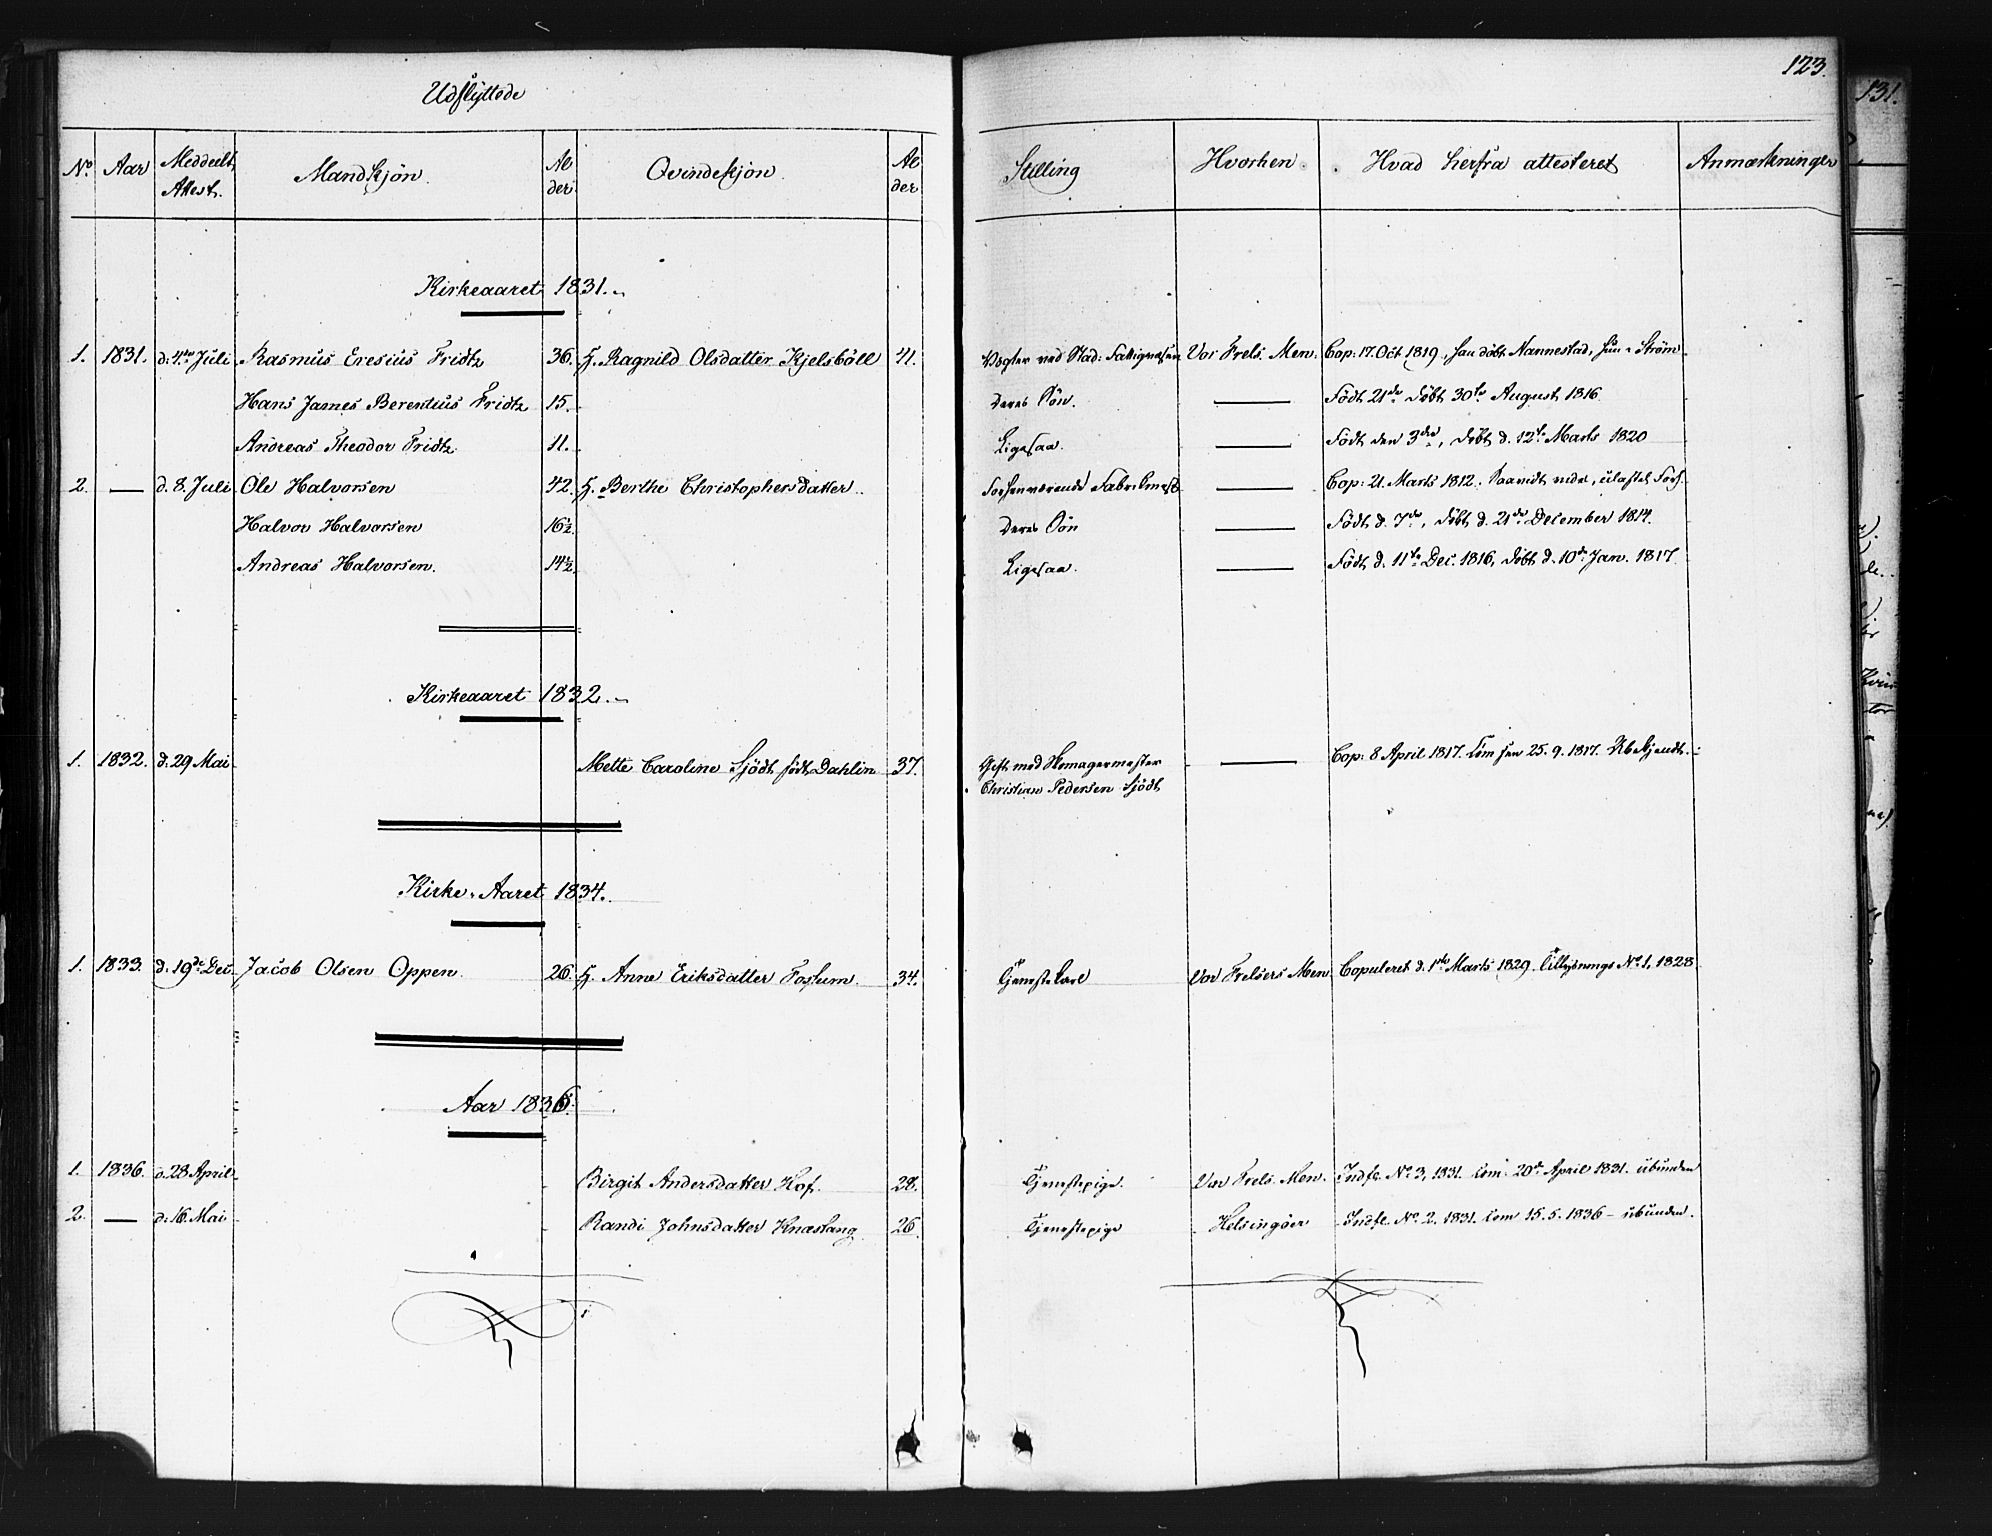 123.
131.
Udflyttede
No Aar Meddeelt Attest. Mandkjön. Alder Qvindekjön. Alder Stilling Hvorhen Hvad herfra attesteret Anmærkninger
Kirkeaaret 1831.
1. 1831. d: 4de Juli Rasmus Eresius Fridtz 36. H. Ragnild Olsdatter Kjelsböll 41. Vogter ved Stad: Vor Frels. Men. Cop: 17. Oct 1819, han döbt Nannestad, hun - Ström
Hans James Berentius Fridtz 15. Deres Sön. — Födt 21de döbt 30te August 1816.
Andreas Theodor Fridtz. 11. Ligesaa. — Födt den 3die, döbt d. 12te Marts 1820
2. — d. 8. Juli Ole Halvorsen 42. H. Berthe Christophersdatter. Forhenværende — Cop: 21. Marts 1812.
Halvor Halvorsen 16½ Deres Sön — Födt d. 7de, döbt d. 21de December 1814.
Andreas Halvorsen. 14½ Ligesaa. — Födt d. 11te Dec. 1816, döbt d. 10de Jan. 1817.
Kirkeaaret 1832.
1. 1832. d. 29 Mai Mette Caroline Sjödt födt Dahlin 37. Gift med Skomagermester — Cop: 8 April 1817. Com hen 25. 9. 1817. Ubekjendt.
Christian Pedersen Sjödt
Kirke-Aaret 1834.
1. 1833. d. 19de Dec. Jacob Olsen Oppen 26. H. Anne Eriksdatter Foshum. 34. Tjenestekarl Vor Frelsers Men Copuleret d. 1ste Marts 1829. Tillysnings No 1, 1828
Aar 1836.
1. 1836. d. 28 April Birgit Andersdatter Hof. 28. Tjenestepige. Vor Frels. Men. Indfl. No 3, 1831. Com. 20de April 1831. ubunden
2. — d: 16. Mai Randi Johnsdatter Knæstang 26. Tjenestepige Helsingöer Indfl. No 2. 1831. Com 15. 5. 1836 - ubunden.